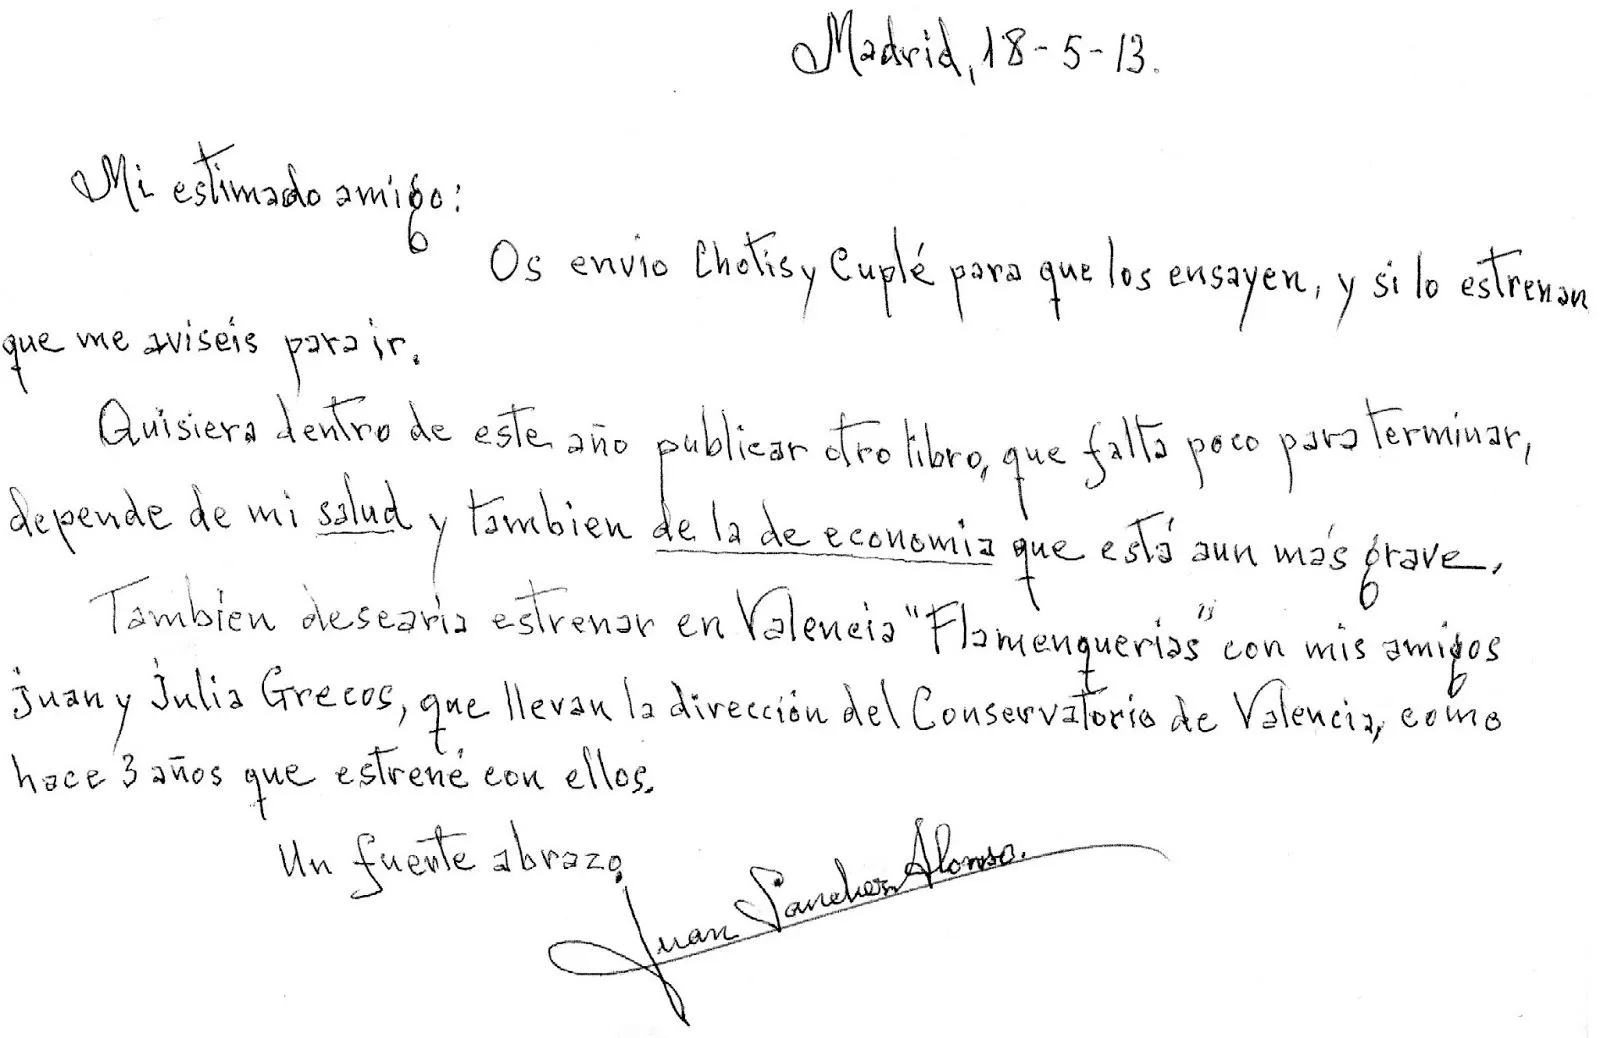 Madrid, 18-5-13.
Mi estimado amigo:
Os envio Chotis y Cuplé para que los ensayen, y si lo estrenan
que me aviseis para ir.
Quisiera dentro de este año publicar otro libro, que falta poco para terminar,
depende de mi salud y tambien de la de economia que está aun más grave.
Tambien desearia estrenar en Valencia "Flamenquerias" con mis amigos
Juan y Julia Grecos, que llevan la dirección del Conservatorio de Valencia, como
hace 3 años que estrené con ellos.
Un fuerte abrazo.
Juan Sanchez Alonso.